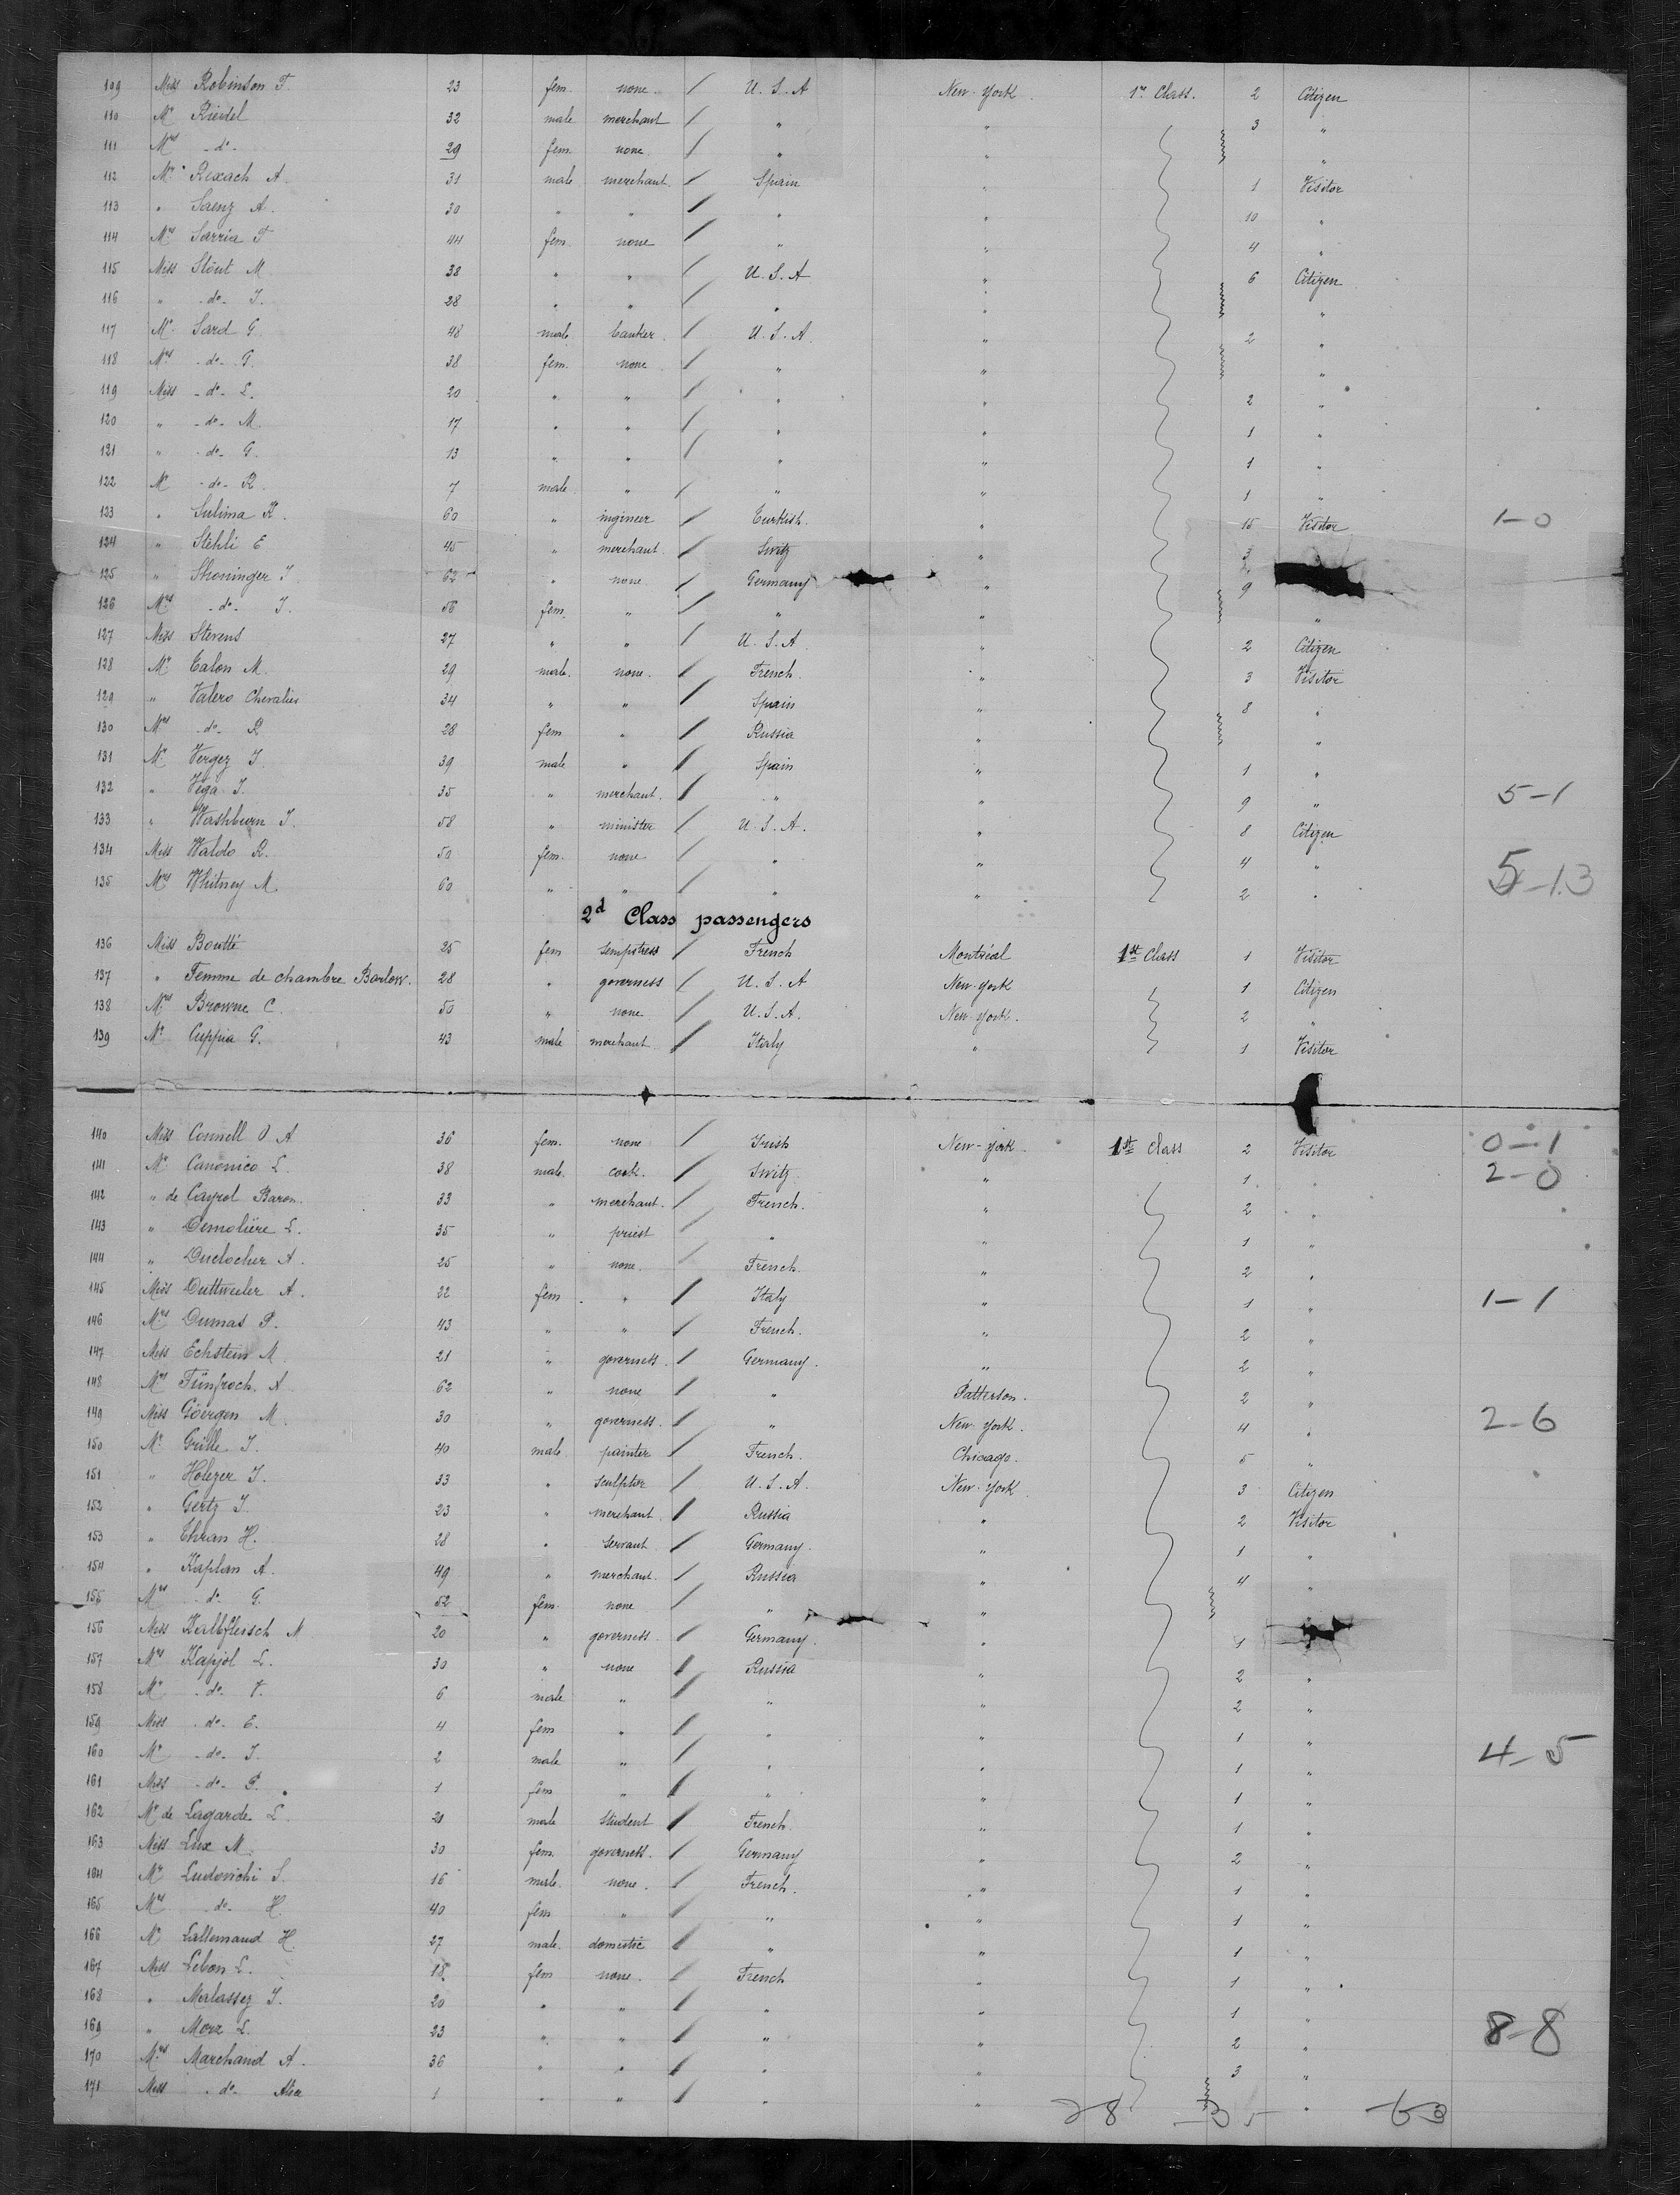 109 Miss Robinson F. 23 fem. none. / U. S. A New-York. 1st Class. 2 Citizen
110 Mr Riedel 32 male merchant / " " 3 "
111 Mrs -do- 29 fem. none / " " "
112 Mr Rexach A. 31 male merchant. / Spain " 1 Visitor
113 " Saenz A. 30 " " / " " 10 "
114 Mrs Sarria F 44 fem. none / " " 4 "
115 Miss Stout M. 38 " " / U. S. A " 6 Citizen
116 " -do- J. 28 " " / " " "
117 Mr Sard G. 48 male banker. / U. S. A. " 2 "
118 Mrs -do- G. 38 fem. none / " " "
119 Miss -do- L. 20 " " / " " 2 "
120 " -do- M. 17 " " / " " 1 "
121 " -do- G. 13 " " / " " 1 "
122 Mr -do- R. 7 male " / " " 1 "
123 " Sulima K. 60 " ingineer / Turkish. " 15 Visitor 1-0
124 " Stehli E 45 " merchant. / Switz " 3
125 " Shoninger J. 62 " none / Germany " 9
126 Mrs -do- J. 56 fem. " / " " "
127 Miss Stevens 27 " " / U. S. A. " 2 Citizen
128 Mr Talon M. 29 male. none. / French. " 3 Visitor
129 " Valero Chevalier 34 " " / Spain " 8 "
130 Mrs -do- R. 28 fem " / Russia " "
131 Mr Vergez J. 39 male " / Spain " 1 "
132 " Vega J. 35 " merchant. / " " 9 " 5-1
133 " Washburn J. 58 " minister / U. S. A. " 8 Citizen
134 Miss Waldo R. 50 fem. none / " " 4 " 5-13
135 Mrs Whitney M. 60 " " / " " 2 "
2d Class passengers
136 Miss Boutté 25 fem sempstress / French Montréal 1st Class 1 Visitor
137 " Femme de chambre Barlow. 28 " governess / U. S. A New-York 1 Citizen
138 Mrs Browne C. 50 " none / U. S. A. New-York. 2 "
139 Mr Cuppia G. 43 male merchant. / Italy " 1 Visitor
140 Miss Connell O A 36 fem. none / Irish New-York. 1st Class 2 Visitor 0-1
141 Mr Canonico L. 38 male. cook. / Switz. " 1 " 2-0
142 " de Cayrol Baron. 33 " merchant. / French. " 2 "
143 " Demolière L. 35 " priest / " " 1 "
144 " Duclocher A. 25 " none. / French. " 2 "
145 Miss Duttweiler A. 22 fem. " / Italy " 1 " 1-1
146 Mrs Dumas P. 43 " " / French. " 2 "
147 Miss Echstein M. 21 " governess. / Germany. " 2 "
148 Mrs Fünfroch. A 62 " none / " Patterson. 2 "
149 Miss Göergen M. 30 " governess. / " New-York. 4 " 2-6
150 Mr Grille J. 40 male painter / French. Chicago. 5 "
151 " Holezer J. 33 " sculptor / U. S. A. New-York 3 Citizen
152 " Gertz J. 23 " merchant. / Russia " 2 Visitor
153 " Thran H. 28 " servant / Germany. " 1 "
154 " Kaplan A. 49 " merchant. / Russia " 4 "
155 Mrs -do- G. 52 fem. none / " " "
156 Miss Kalbfleisch M 20 " governess. / Germany. " 1 "
157 Mrs Kapjol L. 30 " none / Russia " 2 "
158 Mr -do- 6 male " / " " 2 "
159 Miss -do- E. 4 fem " / " " 1 "
160 Mr -do- J. 2 male " / " " 1 " 4-5
161 Miss -do- P. 1 fem " / " " 1 "
162 Mr de Lagarde L. 21 male student / French. " 1 "
163 Miss Lux M. 30 fem. governess. / Germany " 2 "
164 Mr Ludovichi S. 16 male. none. / French. " 1 "
165 Mrs -do- H. 40 fem " / " " 1 "
166 Mr Lallemand H. 27 male. domestic / " " 1 "
167 Miss Lebon L. 18 fem none. / French " 1 "
168 " Malassez J. 20 " " / " " 1 "
169 " Morx L. 23 " " / " " 2 " 8-8
170 Mrs Marchand A. 36 " " / " " 3 "
171 Miss -do- Alice 1 " " / " " "
28 - 35 - 63